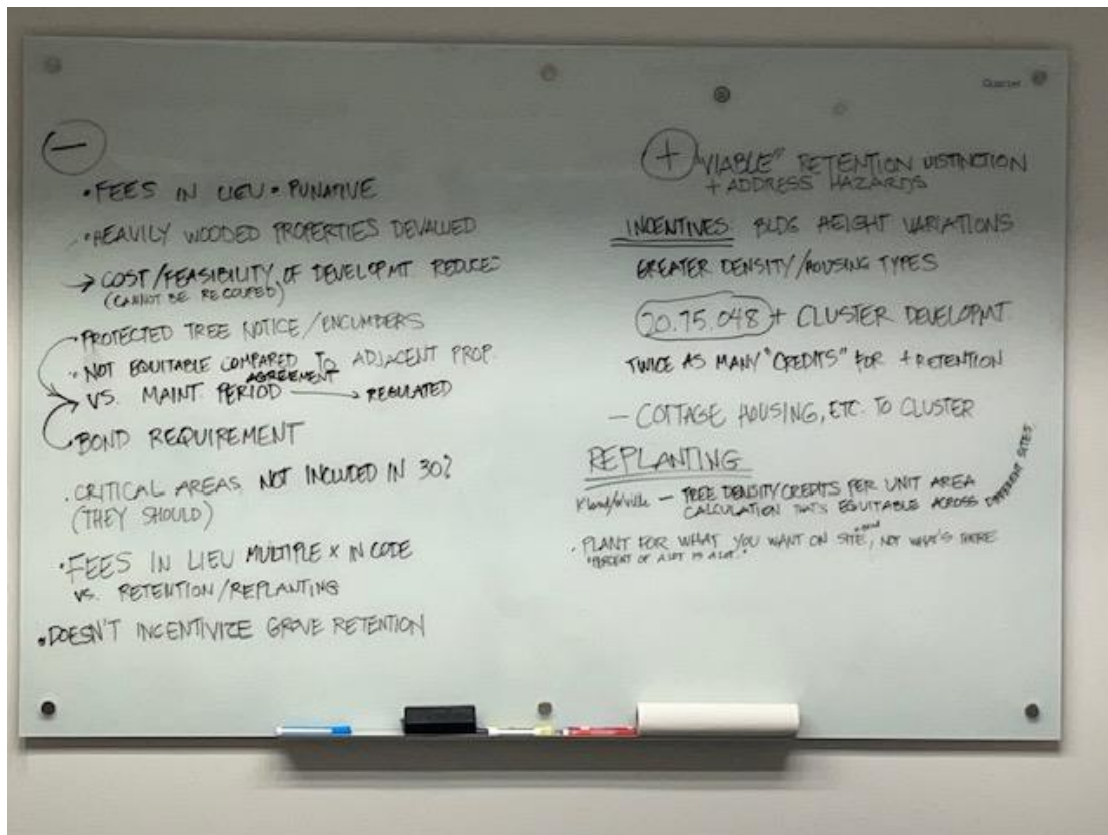 Quartet
−
• FEES IN LIEU • PUNATIVE
• HEAVILY WOODED PROPERTIES DEVALUED
→ COST/FEASIBILITY OF DEVELOPMT REDUCES
(CANNOT BE RECOUPED)
• PROTECTED TREE NOTICE/ENCUMBERS
• NOT EQUITABLE COMPARED TO ADJACENT PROP.
AGREEMENT
VS. MAINT. PERIOD → REGULATED
BOND REQUIREMENT
• CRITICAL AREAS NOT INCLUDED IN 30%
(THEY SHOULD)
• FEES IN LIEU MULTIPLE X IN CODE
VS. RETENTION/REPLANTING
• DOESN'T INCENTIVIZE GROVE RETENTION
+ "VIABLE" RETENTION DISTINCTION
+ ADDRESS HAZARDS
INCENTIVES: BLDG HEIGHT VARIATIONS
GREATER DENSITY/HOUSING TYPES
20.75.048 + CLUSTER DEVELOPMT.
TWICE AS MANY "CREDITS" FOR + RETENTION
— COTTAGE HOUSING, ETC. TO CLUSTER
REPLANTING
Kland/Wville — TREE DENSITY CREDITS PER UNIT AREA
CALCULATION THAT'S EQUITABLE ACROSS DIFFERENT SITES.
• PLANT FOR WHAT YOU WANT ON SITE, NOT WHAT'S THERE
"PERCENT OF A LOT IS A LOT."